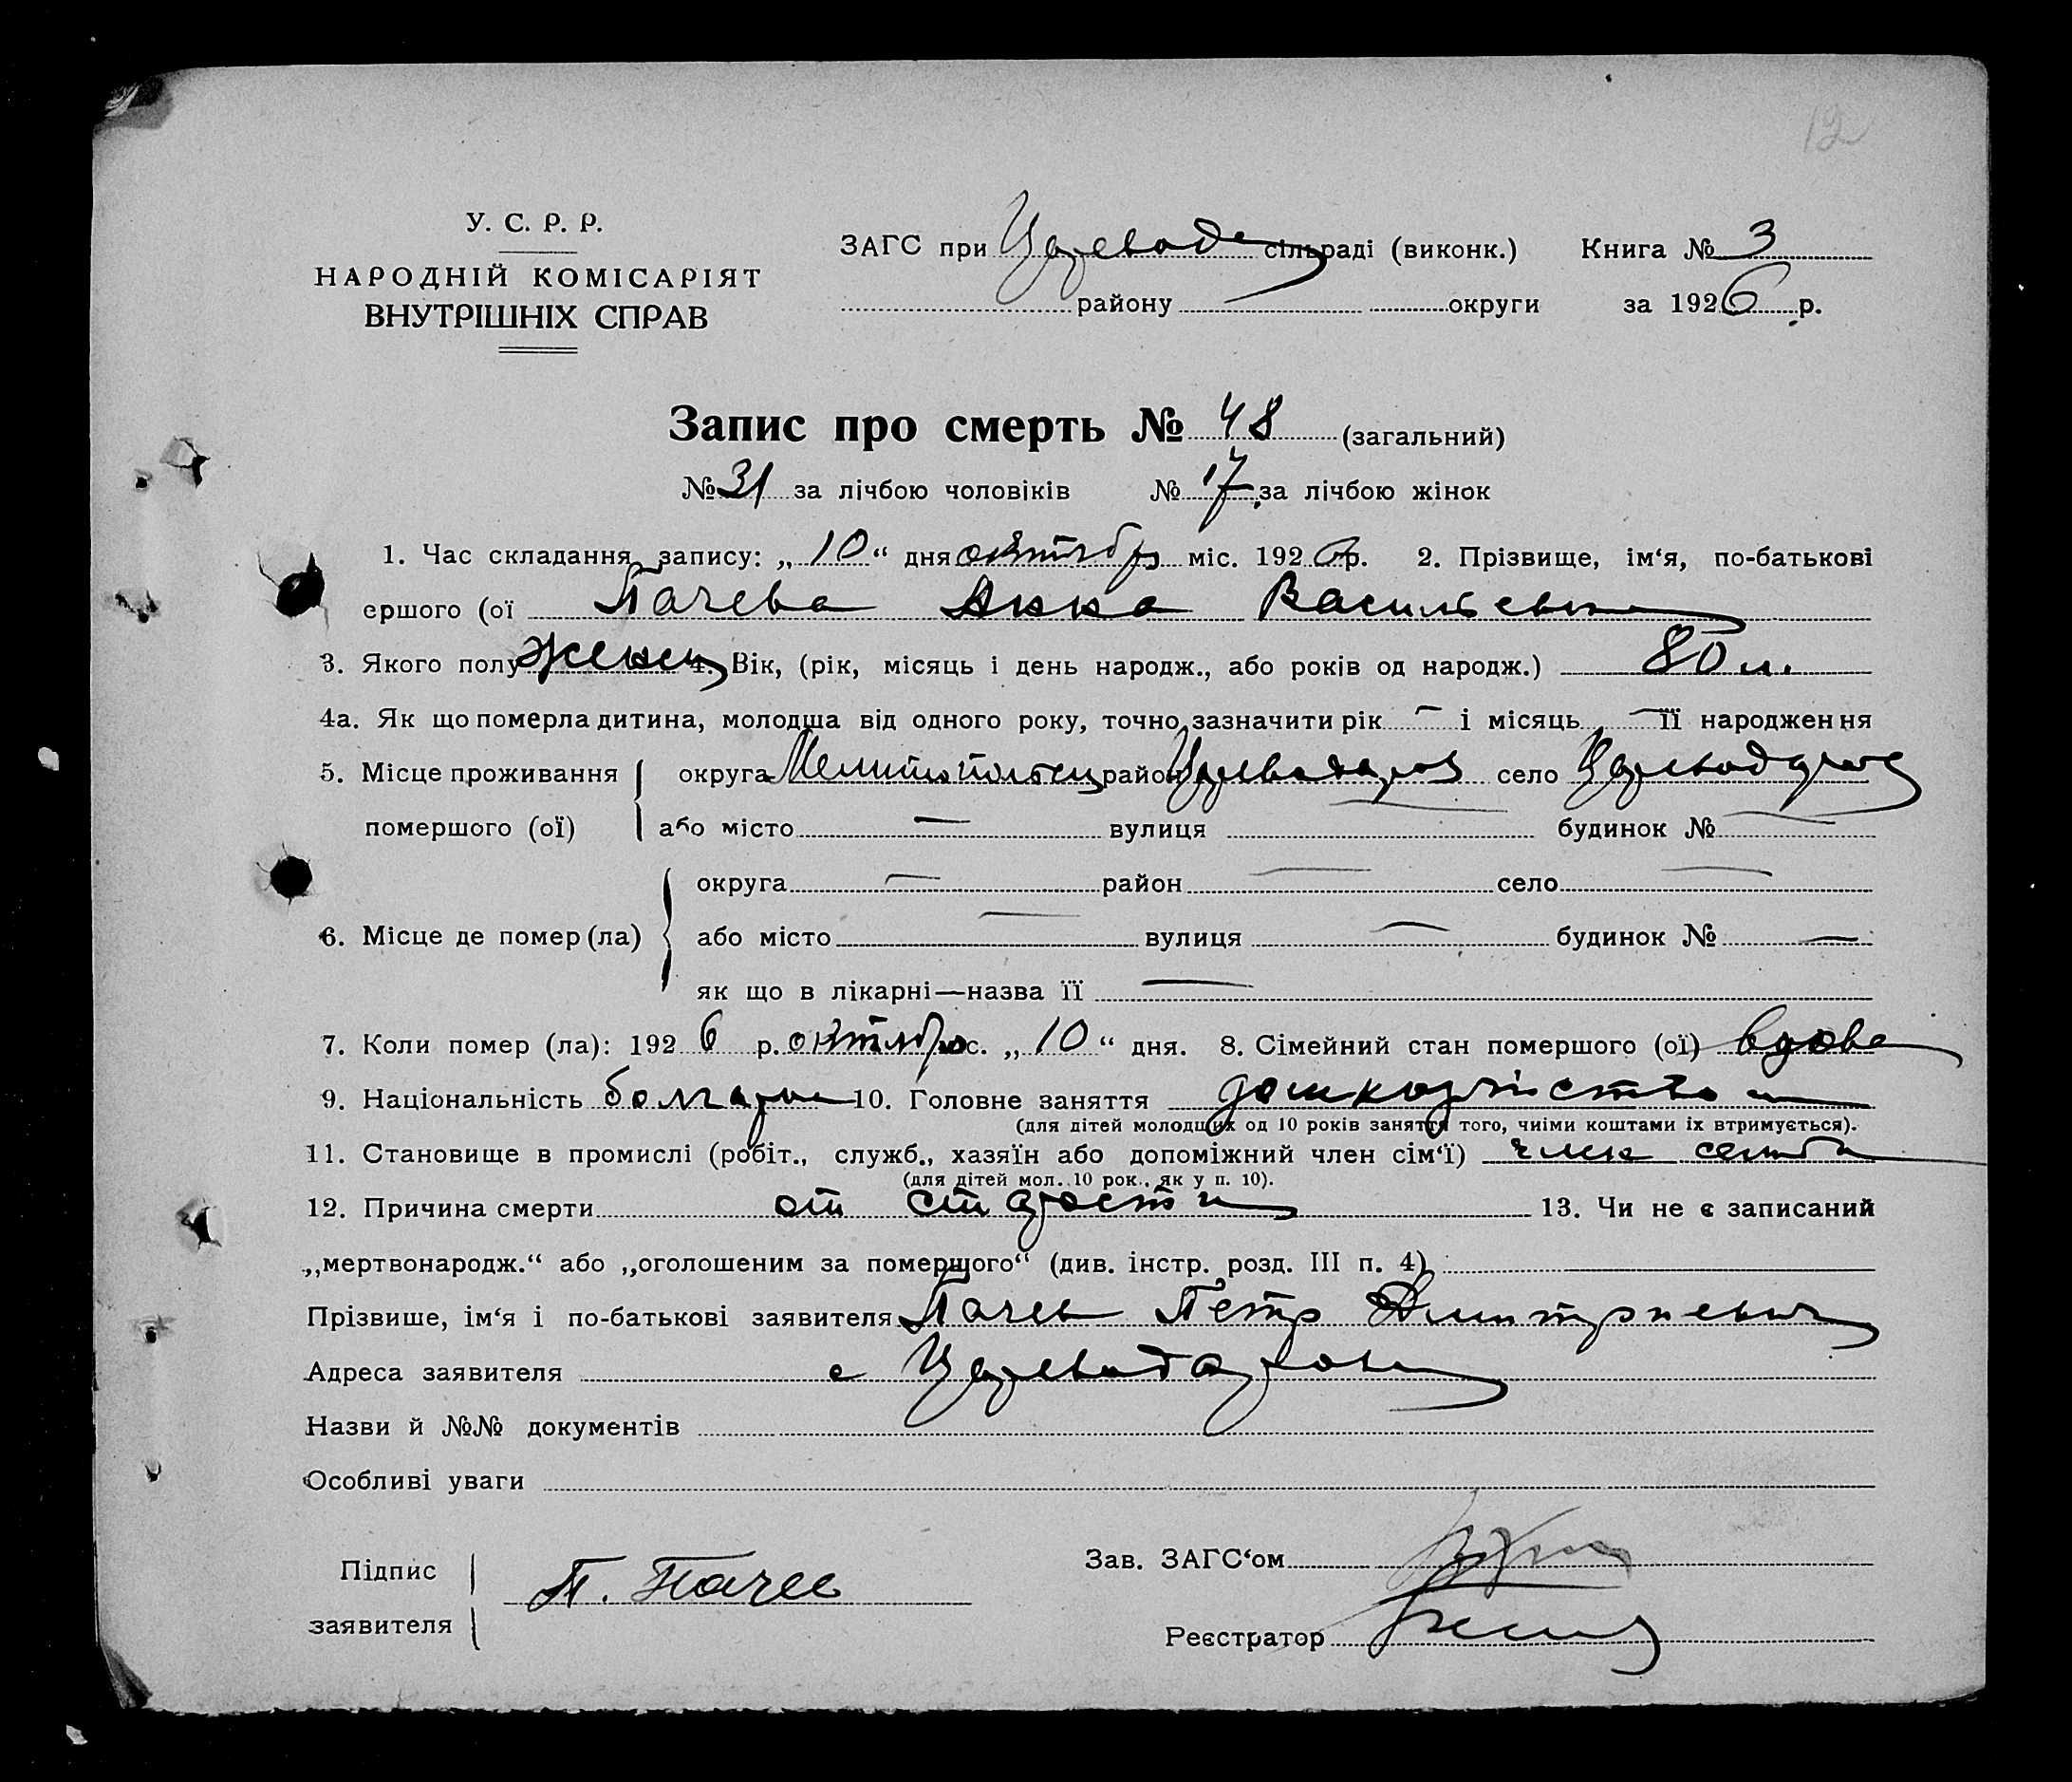 12
У. С. Р. Р.
НАРОДНІЙ КОМІСАРІЯТ
ВНУТРІШНІХ СПРАВ
ЗАГС при Царевод сільраді (виконк.) Книга № 3
району округи за 1926 р.
Запис про смерть № 48 (загальний)
№ 31 за лічбою чоловіків № 17 за лічбою жінок
1. Час складання запису: „10“ дня октября міс. 1926 р. 2. Прізвище, ім‘я, по-батькові
ершого (ої Пачева Анна Васильевна
3. Якого полу женск 4. Вік, (рік, місяць і день народж., або років од народж.) 80 л.
4а. Як що померла дитина, молодша від одного року, точно зазначити рік — і місяць — її народження
5. Місце проживання округа Мелитопольск район Цареводаров село Цареводаров
помершого (ої) або місто — вулиця — будинок № —
округа — район — село —
6. Місце де помер (ла) або місто — вулиця — будинок № —
як що в лікарні—назва її —
7. Коли помер (ла): 1926 р. октября міс. „10“ дня. 8. Сімейний стан помершого (ої) вдова
9. Національність болгарка 10. Головне заняття
(для дітей молодших од 10 років заняття того, чиїми коштами їх втримується).
11. Становище в промислі (робіт., служб., хазяїн або допоміжний член сім‘ї) член семьи
(для дітей мол. 10 рок., як у п. 10).
12. Причина смерти от старости 13. Чи не є записаний
„мертвонародж.“ або „оголошеним за померщого“ (див. інстр. розд. III п. 4)
Прізвише, ім‘я і по-батькові заявителя Пачев Петр Дмитриевич
Адреса заявителя с Цареводаровка
Назви й №№ документів
Особливі уваги
Підпис
заявителя П. Пачев
Зав. ЗАГС‘ом
Реєстратор